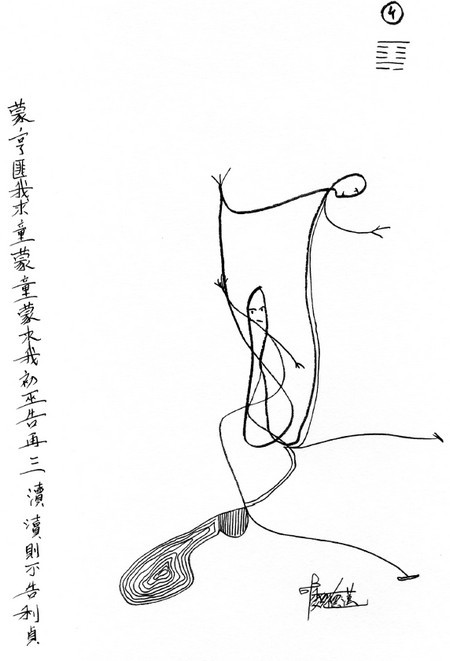 4
蒙亨匪我求童蒙童蒙求我初巫告再三瀆瀆則不告利貞